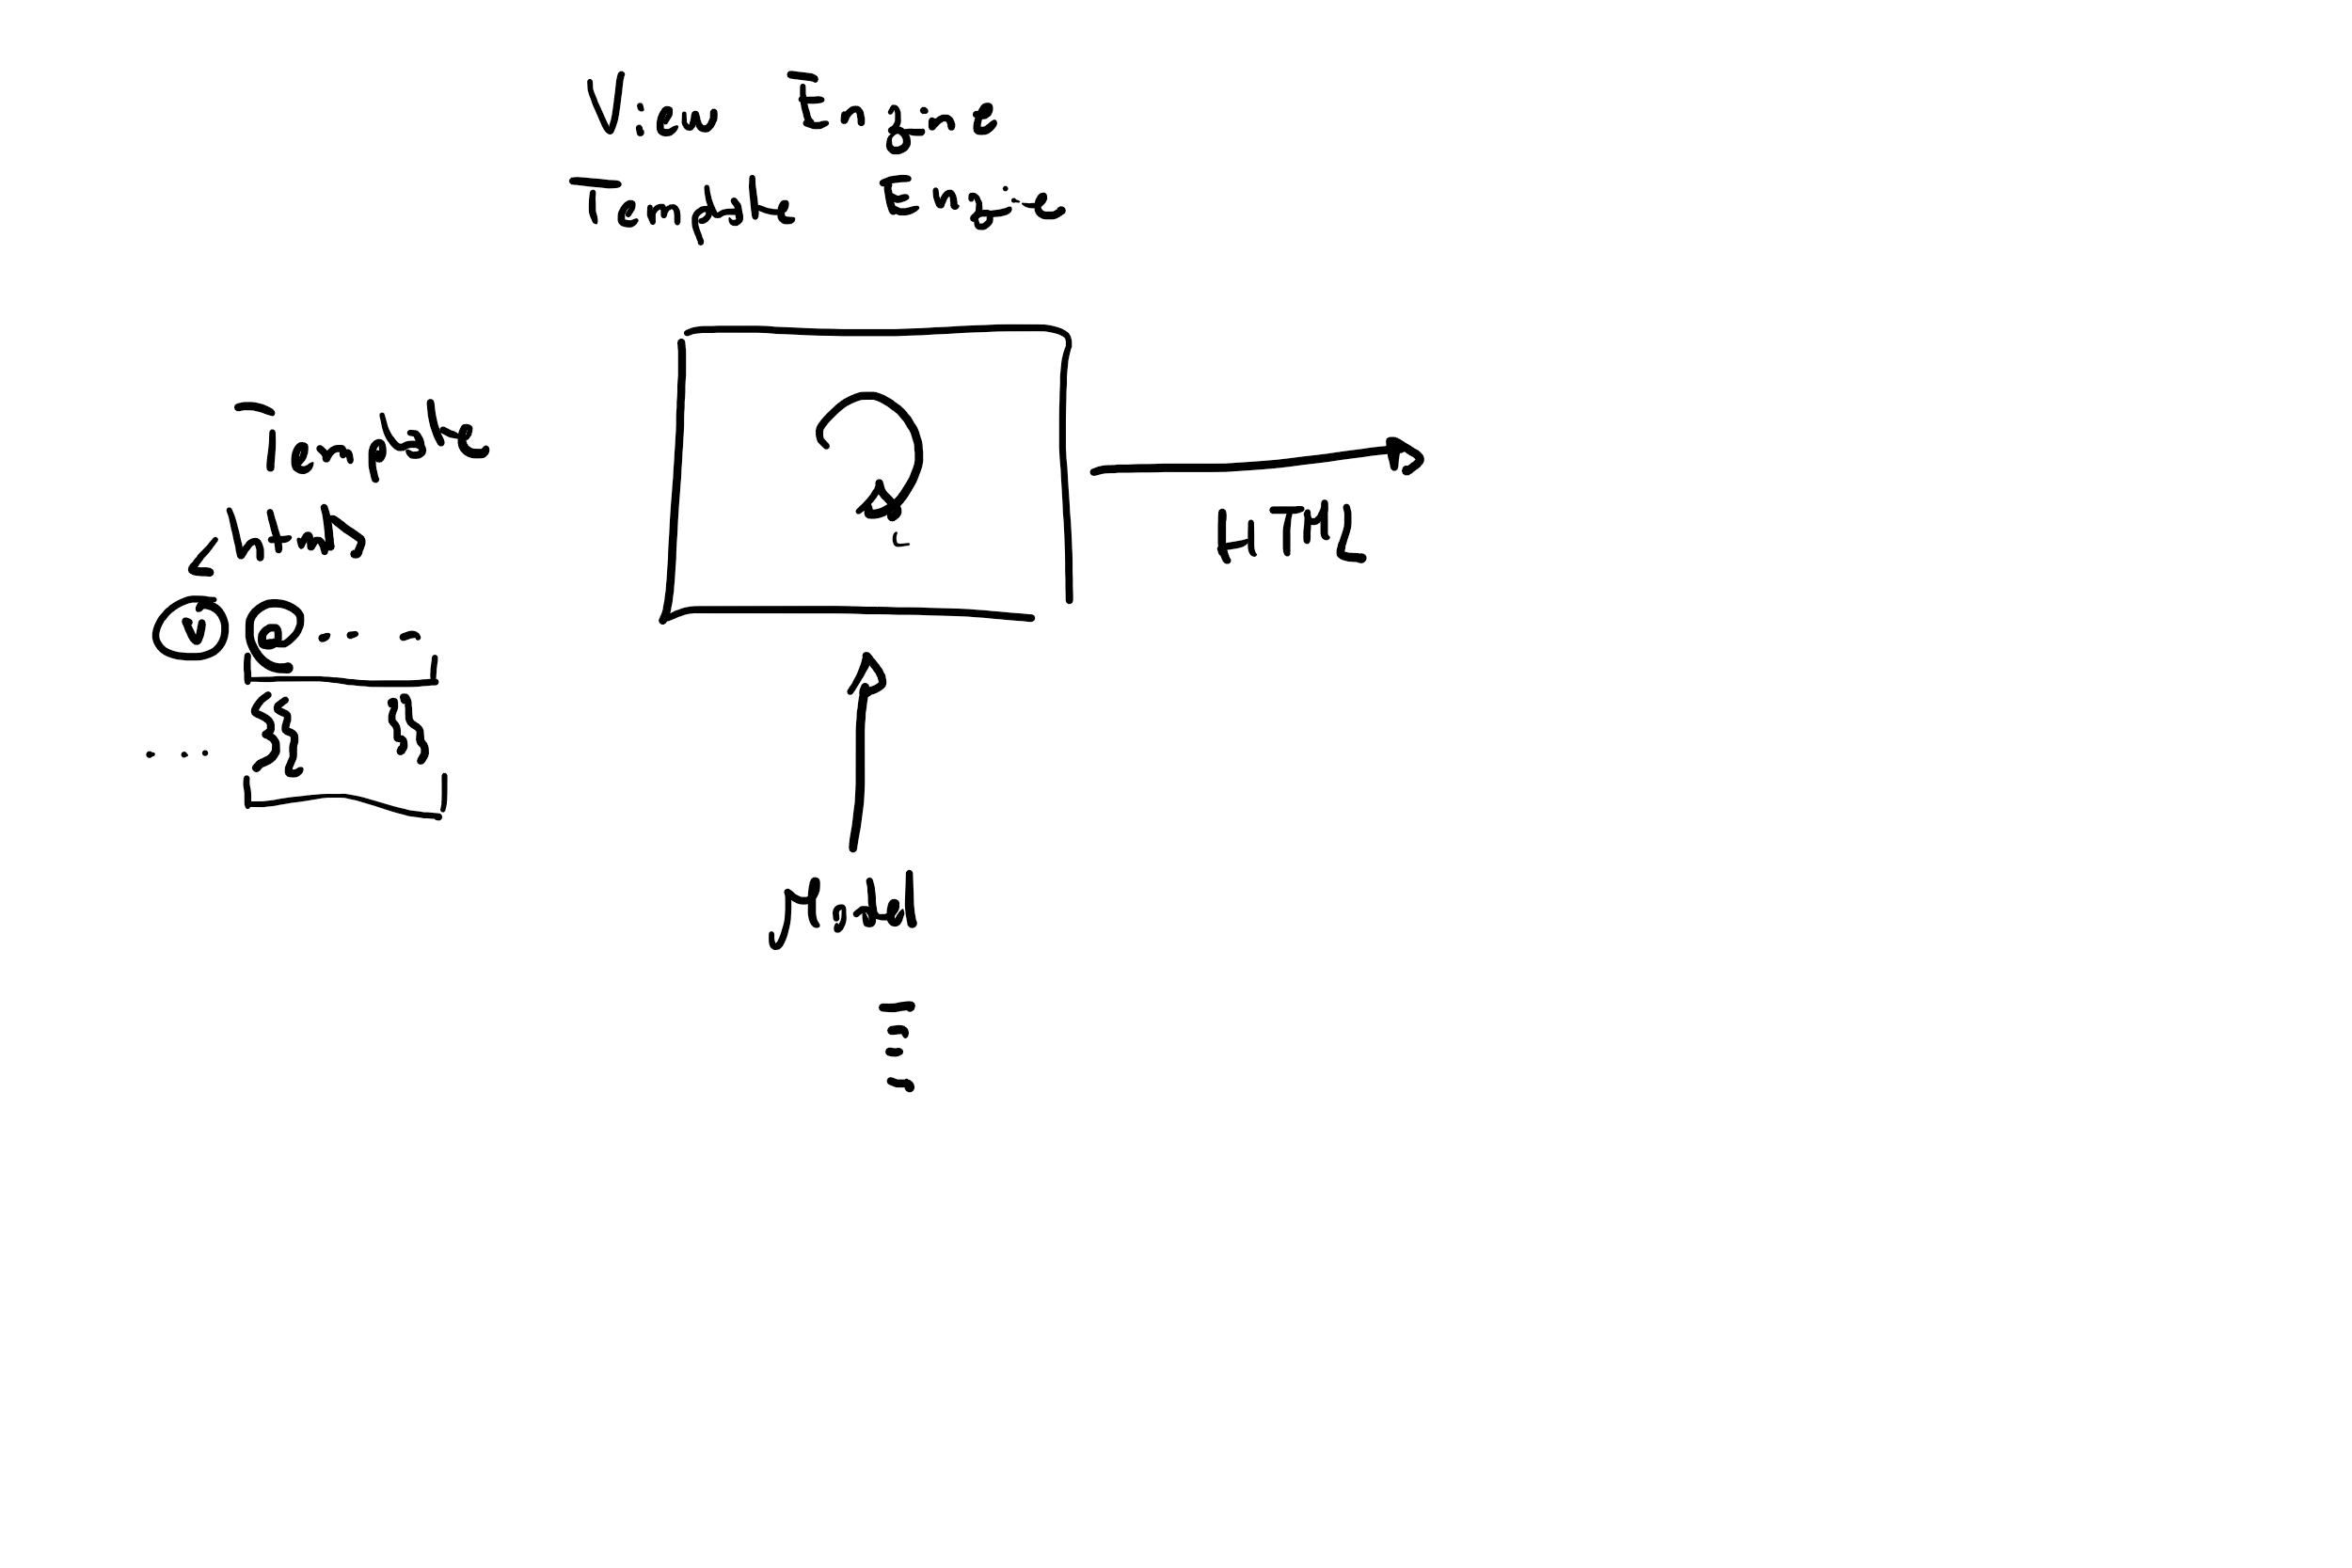 View Engine
Template Engine
Template
<html>
@ - - -
... {{ }}
HTML
Model